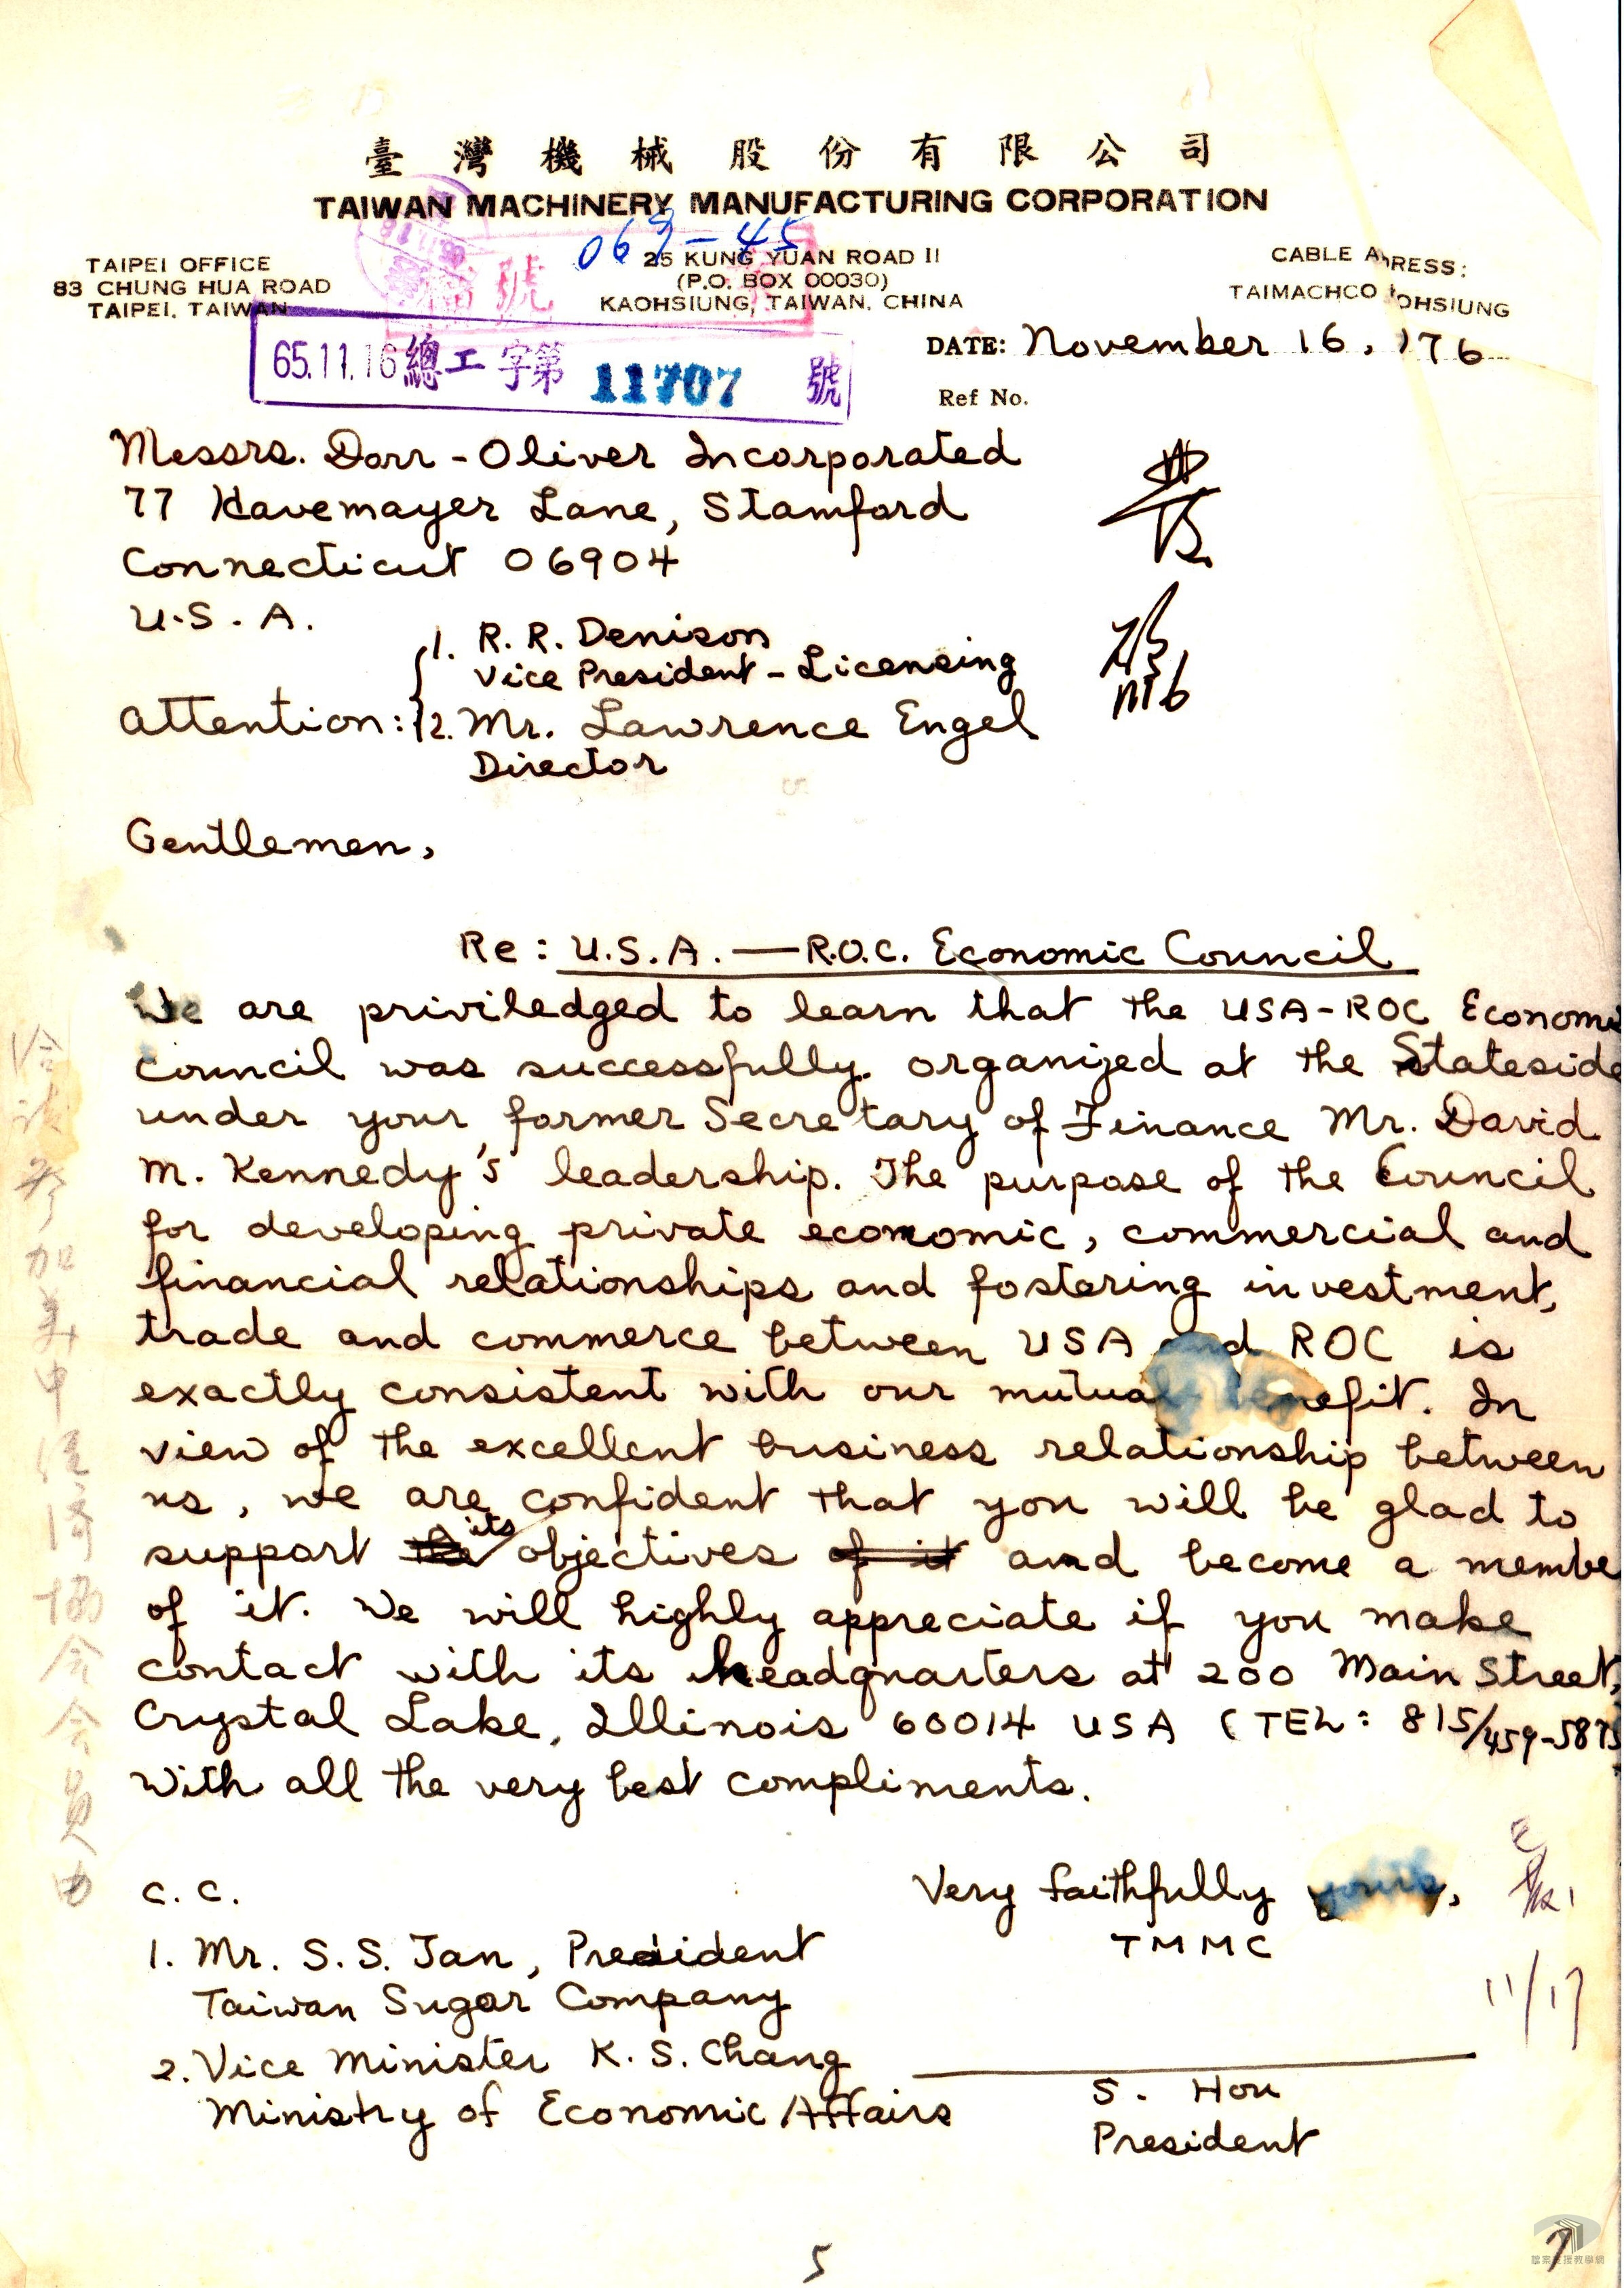 臺灣機械股份有限公司
TAIWAN MACHINERY MANUFACTURING CORPORATION
TAIPEI OFFICE
83 CHUNG HUA ROAD
TAIPEI, TAIWAN
069-45
25 KUNG YUAN ROAD II
(P.O. BOX 00030)
KAOHSIUNG, TAIWAN, CHINA
CABLE ADRESS:
TAIMACHCO KOHSIUNG
號
65.11.16 總工字第 11707 號
DATE: November 16, 176
Ref No.
Messrs. Dorr-Oliver Incorporated
77 Havemayer Lane, Stamford
Connecticut 06904
U.S.A.
Attention: 1. R. R. Denison
Vice President - Licensing
2. Mr. Lawrence Engel
Director
Gentlemen,
Re: U.S.A. — R.O.C. Economic Council
We are priviledged to learn that the USA-ROC Economic
council was successfully organized at the Stateside
under your former Secretary of Finance Mr. David
M. Kennedy's leadership. The purpose of the Council
for developing private economic, commercial and
financial relationships and fostering investment,
trade and commerce between USA and ROC is
exactly consistent with our mutual benefit. In
view of the excellent business relationship between
us, we are confident that you will be glad to
support the its objectives of it and become a membe
of it. We will highly appreciate if you make
contact with its headquarters at 200 Main Street,
Crystal Lake, Illinois 60014 USA (TEL: 815/459-5875
With all the very best compliments.
Very faithfully yours,
TMMC
S. Hou
President
C. C.
1. Mr. S. S. Jan, President
Taiwan Sugar Company
2. Vice Minister K. S. Chang
Ministry of Economic Affairs
11/17
參加美中經濟協會會員由
5
7
檔案支援教學網